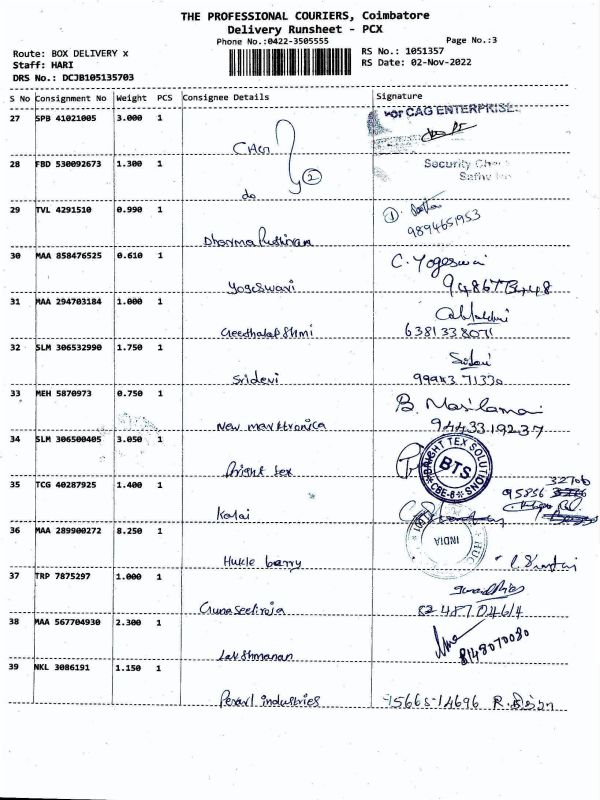 THE PROFESSIONAL COURIERS, Coimbatore
Delivery Runsheet - PCX
Phone No.:0422-3505555
Page No.:3
Route: BOX DELIVERY x
RS No.: 1051357
Staff: HARI
RS Date: 02-Nov-2022
DRS No.: DCJB105135703
S No Consignment No Weight PCS Consignee Details Signature
27 SPB 41021005 3.000 1
For CAG ENTERPRISE
CAG
28 FBD 530092673 1.300 1
②
Security
do
29 TVL 4291510 0.990 1
①
9894651953
Dharma
30 MAA 858476525 0.610 1
C. Yogeswari
Yogeswari
31 MAA 294703184 1.000 1
Geethalakshmi
6381338071
32 SLM 306532990 1.750 1
Sridevi
Sridevi
99943 71330
33 MEH 5870973 0.750 1
B. Masilamai
New marktronics
9443319237
34 SLM 306500405 3.050 1
BRIGHT TEX SOLUTIONS
BTS
CBE-6
Bright tex
35 TCG 40287925 1.400 1
32706
95856
Kalai
36 MAA 289900272 8.250 1
INDIA
Hukle berry
37 TRP 7875297 1.000 1
Gunaseelraja
8248704614
38 MAA 567704930 2.300 1
8148070080
Lakshmanan
39 NKL 3086191 1.150 1
Pearl industries
95665-14696